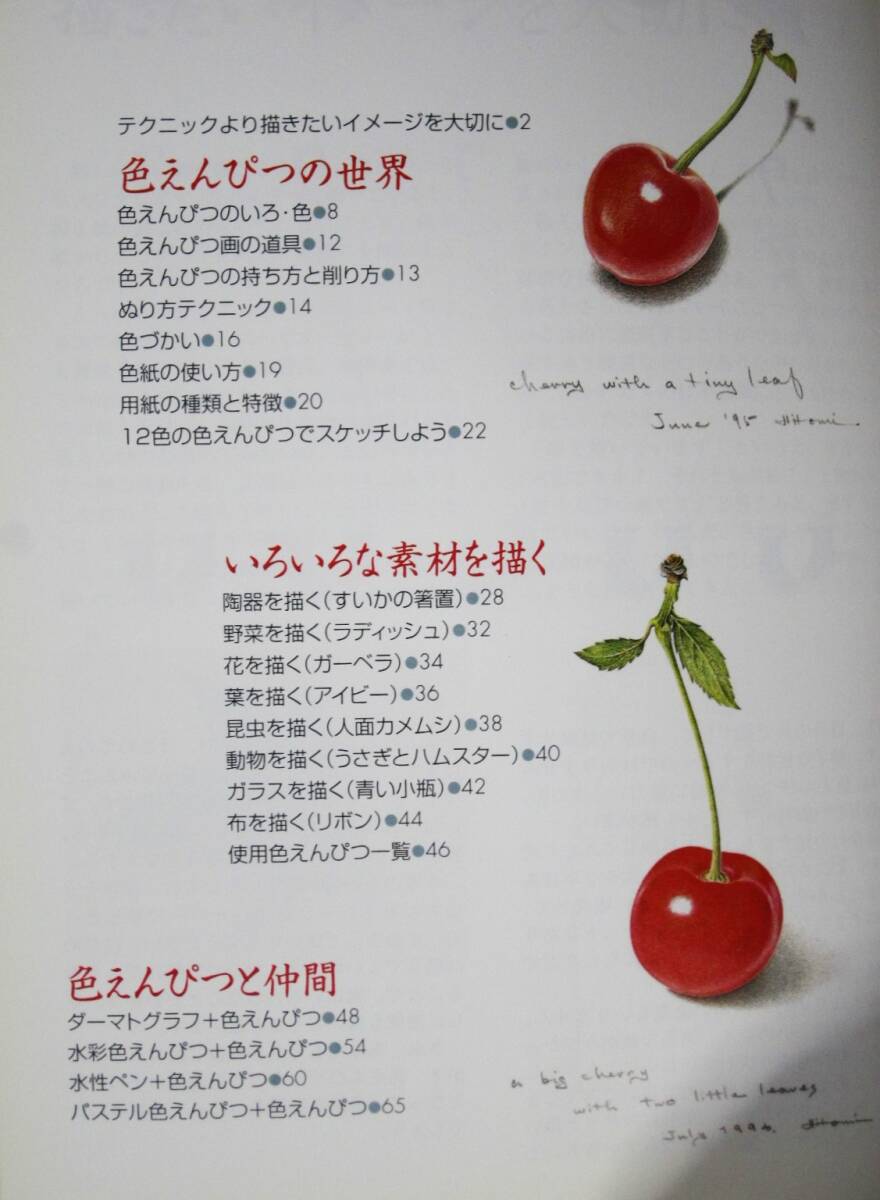 テクニックより描きたいイメージを大切に●2
色えんぴつの世界
色えんぴつのいろ・色●8
色えんぴつ画の道具●12
色えんぴつの持ち方と削り方●13
ぬり方テクニック●14
色づかい●16
色紙の使い方●19
用紙の種類と特徴●20
12色の色えんぴつでスケッチしよう●22
cherry with a tiny leaf
June '95 Hitomi
いろいろな素材を描く
陶器を描く(すいかの箸置)●28
野菜を描く(ラディッシュ)●32
花を描く(ガーベラ)●34
葉を描く(アイビー)●36
昆虫を描く(人面カメムシ)●38
動物を描く(うさぎとハムスター)●40
ガラスを描く(青い小瓶)●42
布を描く(リボン)●44
使用色えんぴつ一覧●46
色えんぴつと仲間
ダーマトグラフ+色えんぴつ●48
水彩色えんぴつ+色えんぴつ●54
水性ペン+色えんぴつ●60
パステル色えんぴつ+色えんぴつ●65
a big cherry
with two little leaves
July 1996. Hitomi